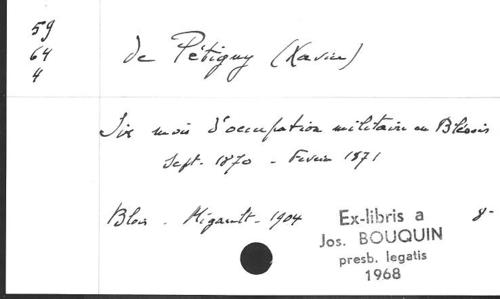 59
64
4
de Pétigny (Xavier)
Six mois d'occupation militaire en Blésois
Sept. 1870 - Fevrier 1871
Blois - Migault - 1904
8-
Ex-libris a
Jos. BOUQUIN
presb. legatis
1968